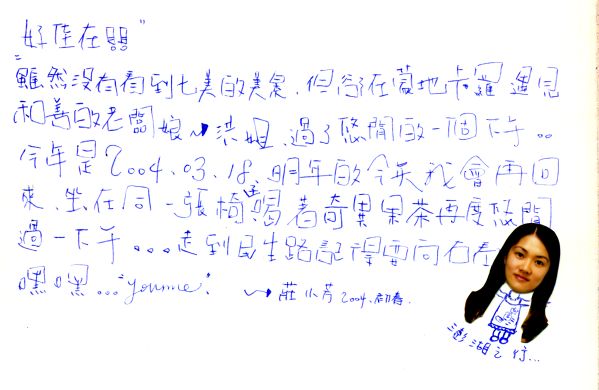 好佳在嘢"
"雖然沒有看到七美的美景.但卻在蒙地卡羅遇見
和善的老闆娘~洪姐.過了悠閒的一個下午..
今年是2004.03.18.明年的今天我會再回
來.坐在同一張椅上喝著奇異果茶再度悠閒
過一下午...走到民生路記得要向右
嘿嘿..."younme". ~莊小芳2004.初春.
澎湖之行...